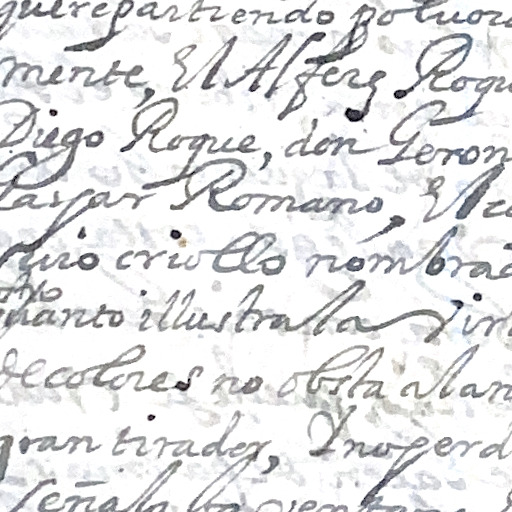 que repartiendo polvor
mente, El Alferz Roqu
Diego Roque, don Geron
Gaspar Romano, El ca
rio criollo nombrad
quanto illustra la vir
de colores no obsta al an
gran tirador, Y no perd
señala la ventana